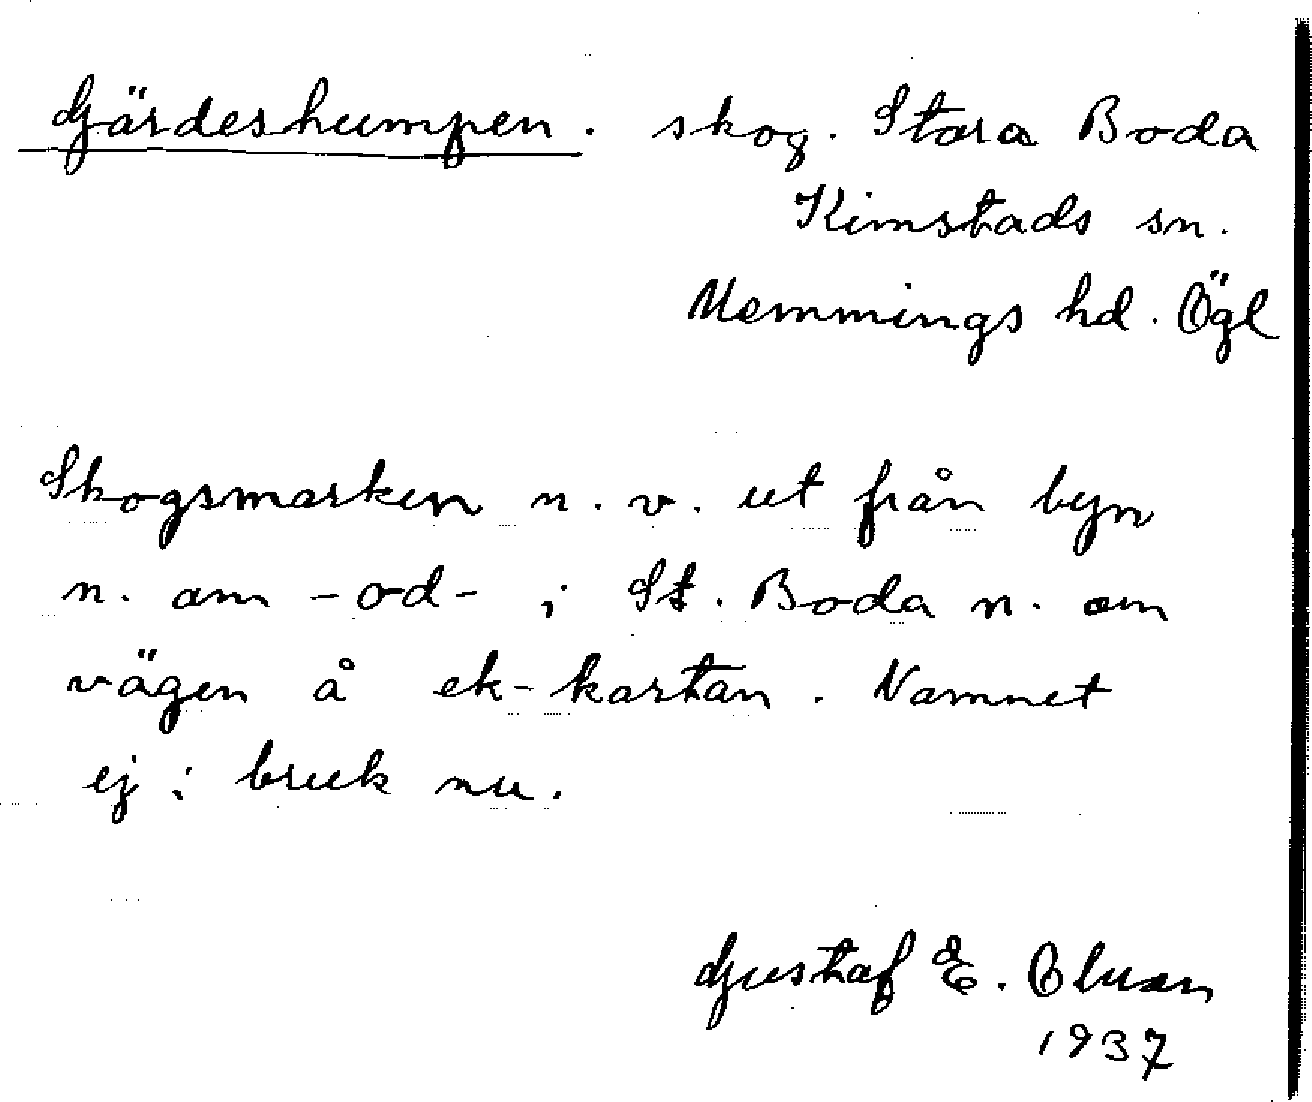 Gärdeshumpen. skog. Stora Boda
Kimstads sn.
Memmings hd. Ögl
Skogsmarken n. v. ut från byn
n. om -od- i St. Boda n. om
vägen å ek-kartan. Namnet
ej i bruk nu.
Gustaf E.
1937